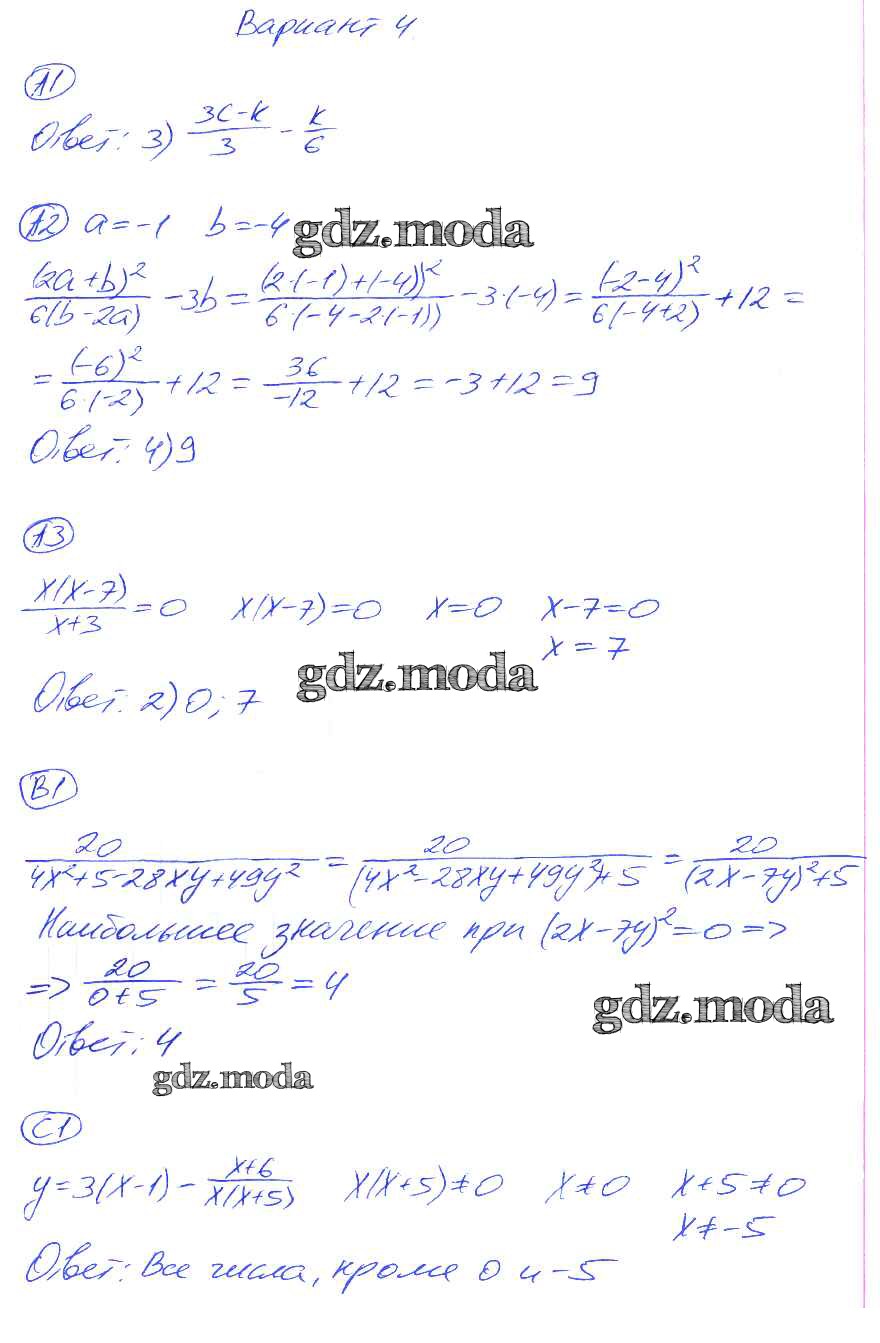 Вариант 4
А1
Ответ: 3) (3c-k)/3 - k/6
А2 a=-1 b=-4
gdz.moda
(2a+b)²/6(b-2a) -3b = (2·(-1)+(-4))²/6·(-4-2·(-1)) -3·(-4) = (-2-4)²/6(-4+2) +12 =
= (-6)²/6·(-2) +12 = 36/-12 +12 = -3+12 = 9
Ответ: 4) 9
А3
x(x-7)/x+3 = 0 x(x-7)=0 x=0 x-7=0
x = 7
gdz.moda
Ответ: 2) 0; 7
В1
20/4x²+5-28xy+49y² = 20/(4x²-28xy+49y²)+5 = 20/(2x-7y)²+5
Наибольшее значение при (2x-7y)²=0 =>
=> 20/0+5 = 20/5 = 4
gdz.moda
Ответ: 4
gdz.moda
С1
y=3(x-1) - x+6/x(x+5) x(x+5)≠0 x≠0 x+5≠0
x≠-5
Ответ: Все числа, кроме 0 и -5